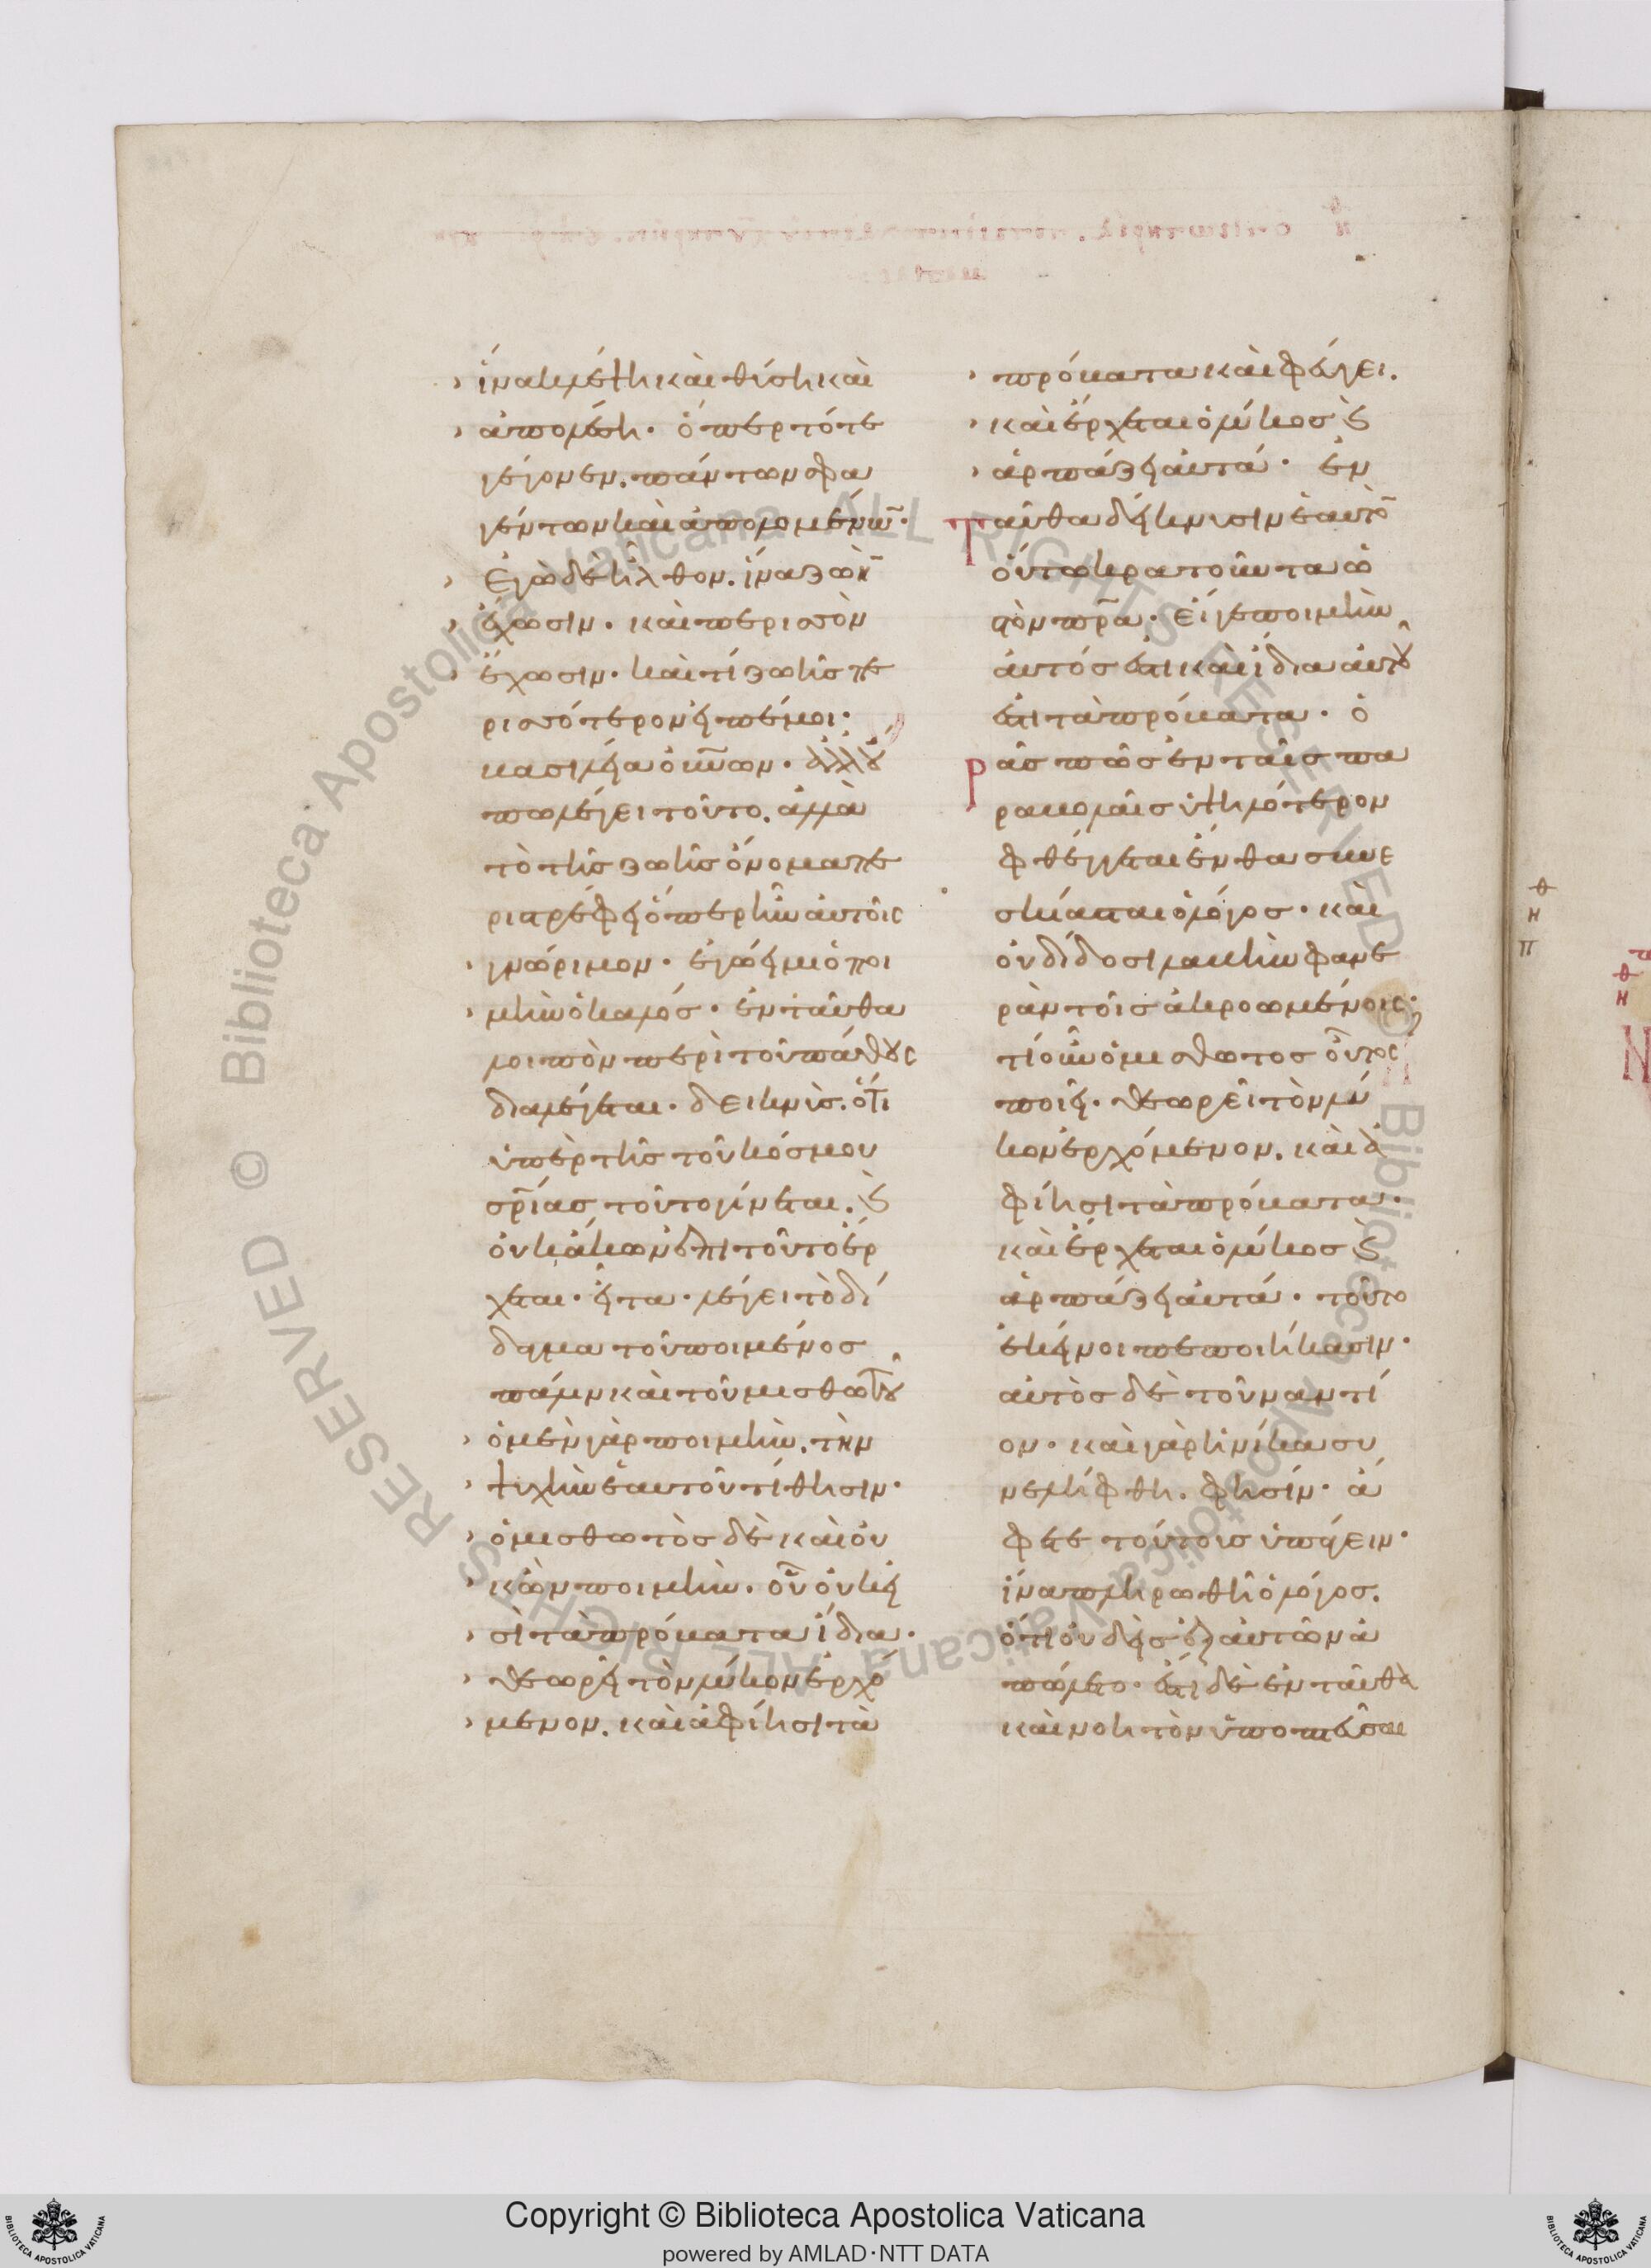 ἵνα κλέψῃ καὶ θύσῃ καὶ
ἀπολέσῃ· ὅπερ τότε
γέγονεν. πάντων σφα
γέντων καὶ ἀπολομένω̅·
Ἐγὼ δὲ ἦλθον. ἵνα ζωὴ̅
ἔχωσιν· καὶ περισσὸν
ἔχωσιν· καὶ τί ζωῆς πε
ρισσότερον εἰπέ μοι·
βασιλεία οὐ̅νῶν· ἀλλ' οὔ
πω λέγει τοῦτο. ἀλλὰ
τὸ τῆς ζωῆς ὄνομα πε
ριστρέφει ὅπερ ἦν αὐτοῖς
γνώριμον· ἐγώ εἰμι ὁ ποι
μὴν ὁ καλός· ἐνταῦθα
λοιπὸν περὶ τοῦ πάθους
διαλέγεται· δεικνὺς. ὅτι
ὑπὲρ τῆς τοῦ κόσμου
σρ̅ίας τοῦτο γίνεται. καὶ
οὐκ ἄκων ἐπὶ τοῦτο ἔρ
χεται· εἶτα· λέγει τὸ δί
δαγμα τοῦ ποιμένος
πάλιν καὶ τοῦ μισθωτοῦ
ὁ μὲν γὰρ ποιμὴν. τὴν
ψυχὴν ἑαυτοῦ τίθησιν·
ὁ μισθωτὸς δὲ καὶ οὐ
κ ὢν ποιμὴν. οὗ οὐκ εἰ
σὶ τὰ πρόβατα ἴδια·
θεωρεῖ τὸν λύκον ἐρχό
μενον. καὶ ἀφίησι τὰ
πρόβατα καὶ φεύγει.
καὶ ἔρχεται ὁ λύκος καὶ
ἁρπάζει αὐτά· ἐν
ταῦθα δείκνυσιν ἑαυτὸ̅
οὕτω κρατοῦντα ὡ
τὸν πρ̅α· εἴγε ποιμὴν
αὐτός ἐστι καὶ ἴδια αὐτοῦ
ἐστι τὰ πρόβατα· ὁ
ρᾷς πῶς ἐν ταῖς πα
ραβολαῖς ὑψηλότερον
φθέγγεται ἔνθα συνε
σκίασται ὁ λόγος· καὶ
οὐ δίδοσι λαβὴν φανε
ρὰν τοῖς ἀκροωμένοις·
τί οὖν ὁ μισθωτὸς οὗτος
ποιεῖ· θεωρεῖ τὸν λύ
κον ἐρχόμενον. καὶ ἀ
φίησι τὰ πρόβατα.
καὶ ἔρχεται ὁ λύκος καὶ
ἁρπάζει αὐτά· τοῦτο
ἐκεῖνοι πεποιήκασιν·
αὐτὸς δὲ τοὐναντί
ον· καὶ γὰρ ἡνίκα συ
νελήφθη. φησίν· ἄ
φετε τούτους ὑπάγειν·
ἵνα πληρωθῇ ὁ λόγος.
ὅτι οὐδεὶς ἐξ αὐτῶν ἀ
πώλετο· ἔστι δὲ ἐνταῦθα
καὶ νοητὸν ὑποπτεῦσαι